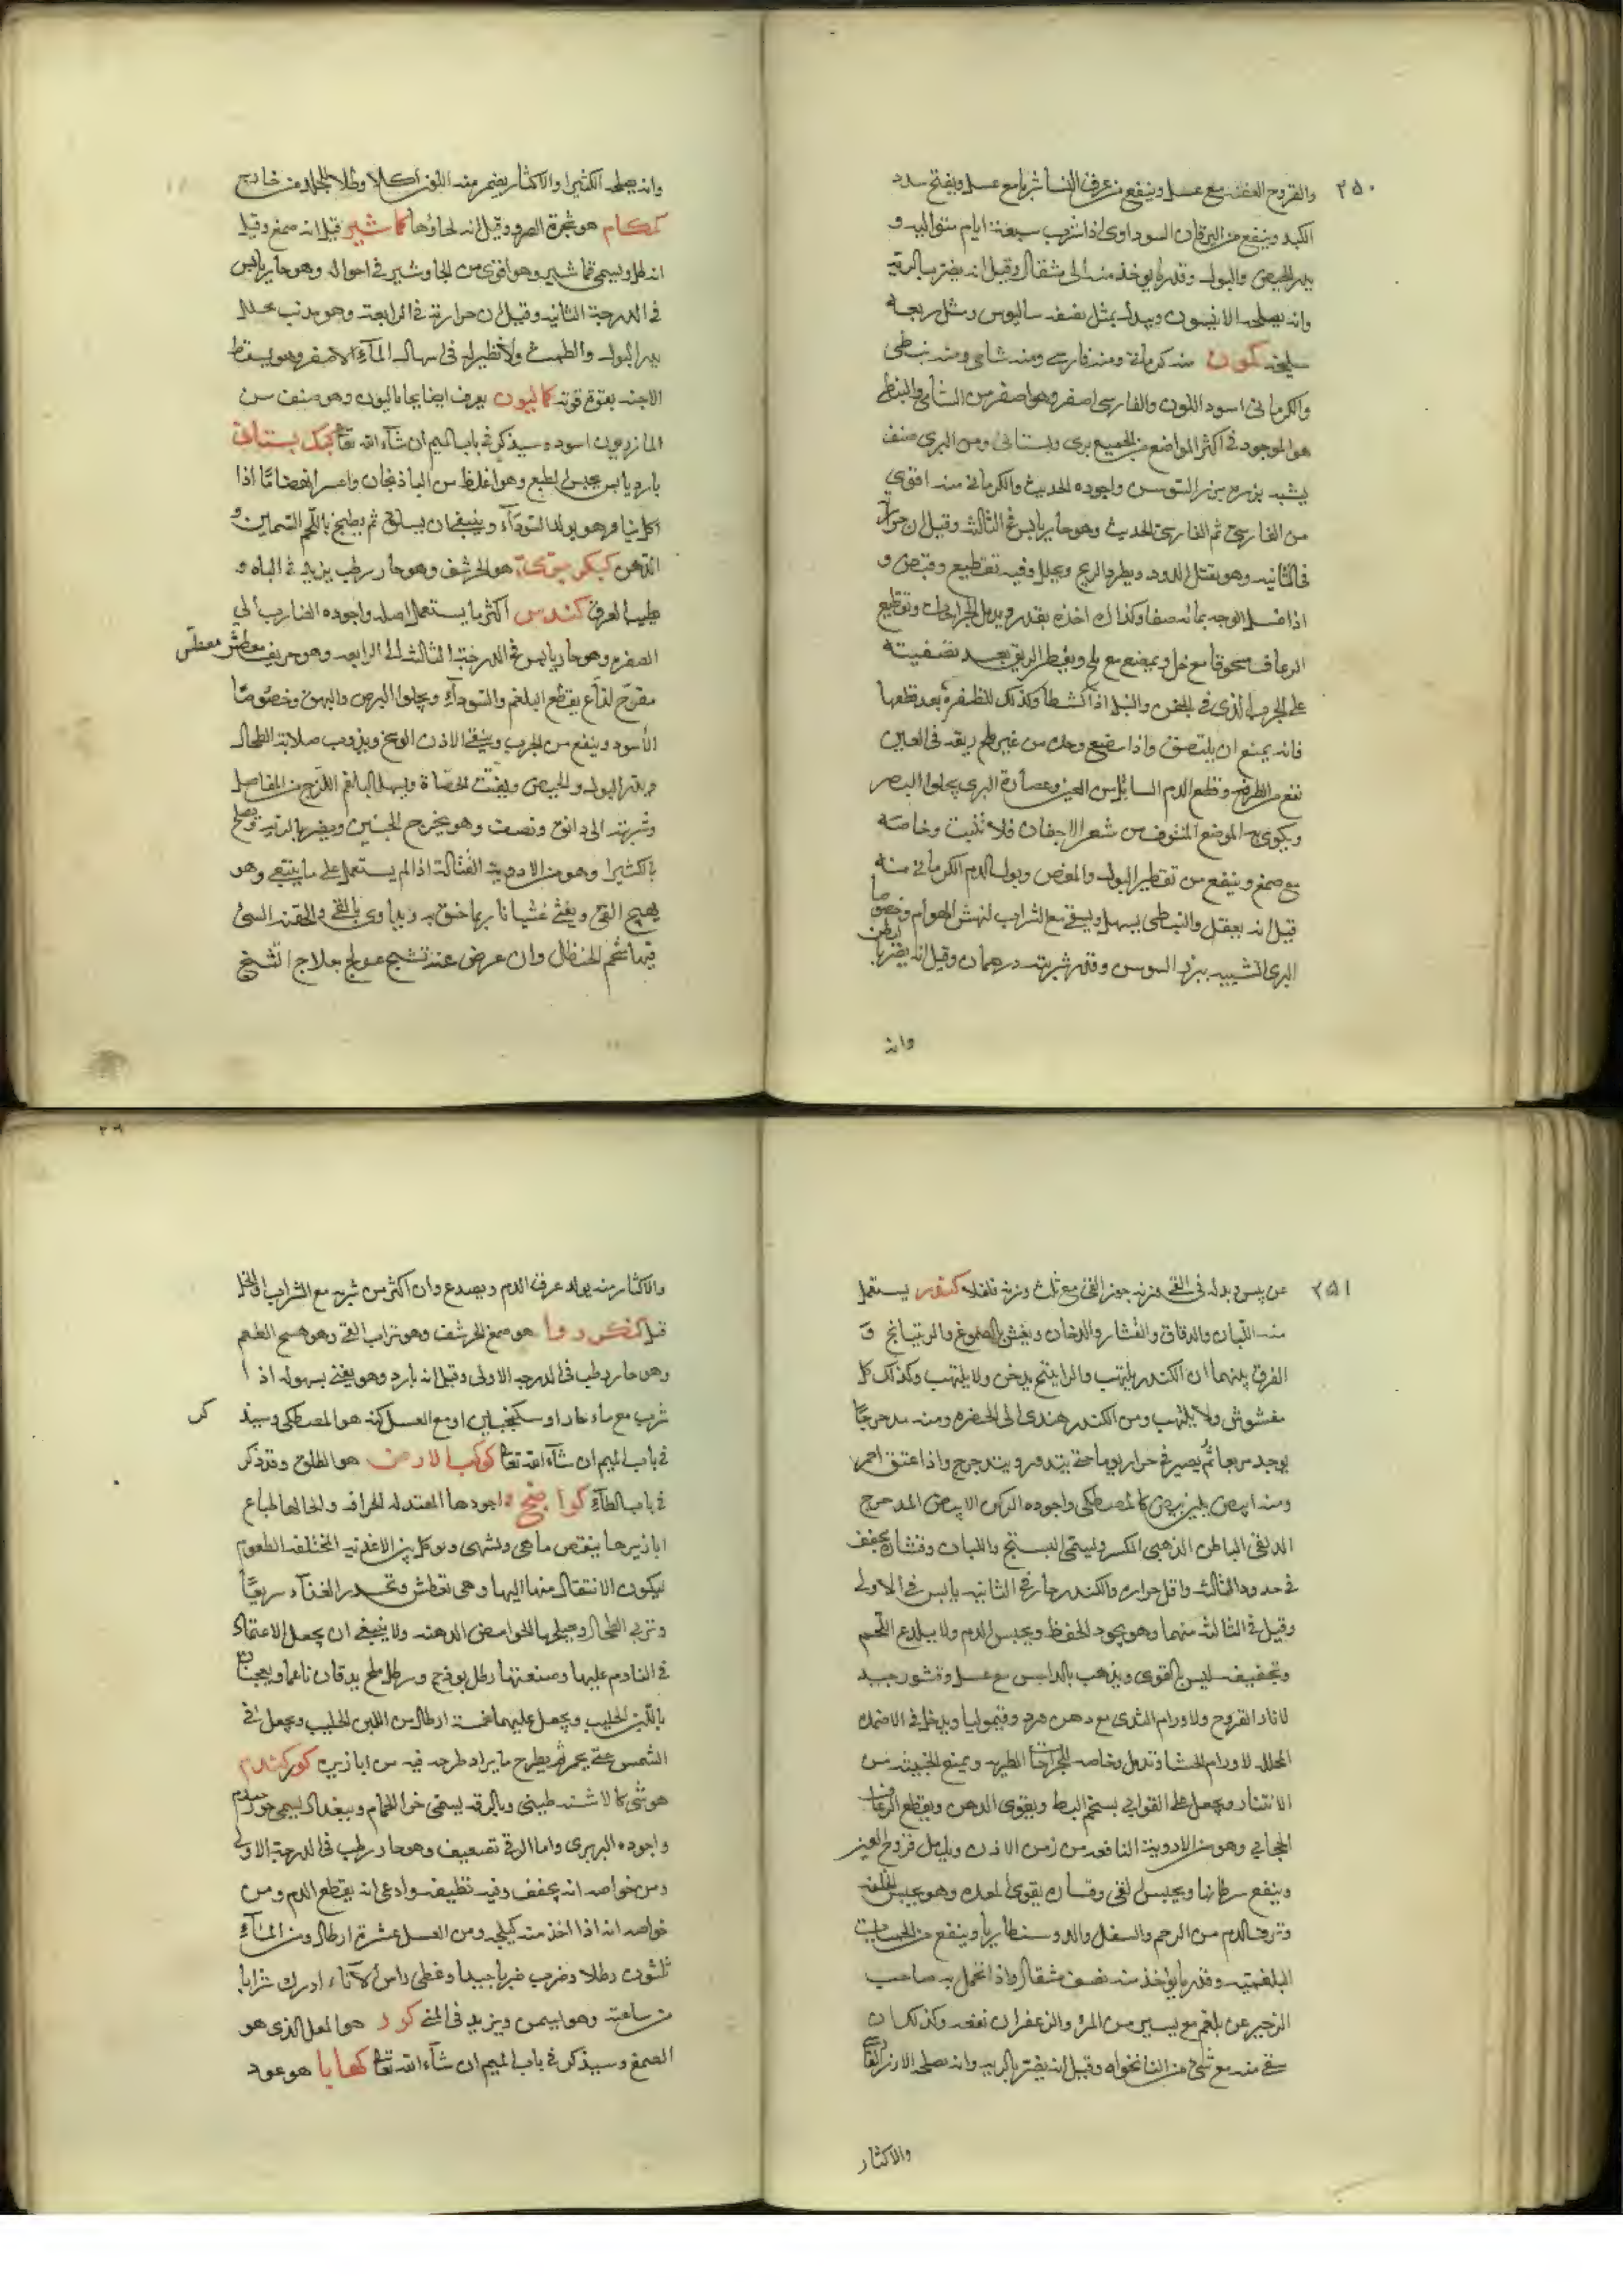 ٢٥٠
والقروح العفنة مع عسل وينفع من عرق النسا شربا مع عسل ويفتح سدد
الكبد وينفع من اليرقان السوداوى اذا شرب سبعة ايام متواليه و
يدر الحيض والبول وقدر ما يوخذ منه الى مثقال وقيل انه يضر بالرية
وانه يصلحه الانيسون وبدله بمثل نصفه ساليوس ومثل ربعه
سليخه كمون منه كرمانى ومنه فارسى ومنه شامى ومنه نبطى
والكرمانى اسود اللون والفارسى اصفر وهو اصفر من الشامى والنبطى
هو الموجود فى اكثر المواضع من الجميع برى وبستانى ومن البرى صنف
يشبه بزره بزر السوسن واجوده الحديث والكرمانى منه اقوى
من الفارسى ثم الفارسى الحديث وهو حار يابس فى الثالثه وقيل ان حرارته
فى الثانيه وهو يقتل الدود ويطرد الريح ويحلل وفيه تقطيع وقبض و
اذا غسل الوجه بمائه صفا وكذلك اخذه بقدر ويدمل الجراحات وتقطيع
الرعاف مسحوقا مع خل ويمضغ مع ملح ويقطر الريق بعد تصفيته
على الجرب الذى فى الجفن والسبل اذا كشطا وكذلك للظفرة بعد قطعها
فانه يمنع ان يلتصق واذا مضغ وحده من غير ملح ريقه فى العين
نفع من الطرفة وقطع الدم السائل من العين وعصارة البرى يجلوا البصر
ويكوى به الموضع المنتوف من شعر الاجفان فلا تنبت وخاصه
مع صمغ وينفع من تقطير البول والمغص وبول الدم الكرمانى منه
قيل انه يعقل والنبطى يسهل ويسقى مع الشراب لنهش الهوام وخصوصا
البرى الشبيه ببزر السوسن وقدر شربته درهمان وقيل انه يضر بالبطن
وانه
وانه يصلحه الكثيرا والاكثار يضر منه اللون اكلا وطلا للجلد من خارج
كمكام هو شجرة الضرو وقيل انه لحاؤها كماشير قيل انه صمغ وقيل
انه طل ويسمى قماشير وهو اقوى من الجاوشير فى احواله وهو حار يابس
فى الدرجة الثانيه وقيل ان حرارته فى الرابعة وهو مذيب محلل
يدر البول والطمث ولا نظير له فى اسهال الماء الاصفر وهو يسقط
الاجنه بقوة قويه كماليون يعرف ايضا بخاماليون وهو صنف من
المازريون اسود وسيذكر فى باب الميم ان شاء الله تعا كمك بستانى
بارد يابس يحبس الطبع وهو اغلظ من الباذنجان واعسر انهضاما اذا
اكل نيا وهو يولد السوداء وينبغى ان يسلق ثم يطبخ باللحم السمين و
الدهن كنكر هو الحرشف وهو حار رطب يزيد فى الباه و
طيب العرق كندس اكثر ما يستعمل اصله واجوده الضارب الى
الصفره وهو حار يابس فى الدرجة الثالثه الى الرابعه وهو حريف معطش معطس
مقرح لذاع يقطع البلغم والسوداء ويجلوا البرص والبهق وخصوصا
الاسود وينفع من الجرب وينقى الاذن الوسخ ويذوب صلابة الطحال
ويدر البول والحيض ويفتت الحصاة ويسهل البلغم اللزج من المفاصل
وشربته الى دانق ونصف وهو يخرج الجنين ويضر بالرئه ويصلح
بالكثيرا وهو من الادوية القتالة اذا لم يستعمل على ما ينبغى وهو
يهيج القى ويغثى غشيانا ربما خنق به ويداوى بالقى والحقنه التى
فيها شحم الحنظل وان عرض عنه تشنج عولج بعلاج التشنج
٢٥١
عن يبس وبدله فى القى وزنه جوز القى مع ثلث وزنه فلفلا كندر يستعمل
منه اللبان والدقاق والقشار والدخان ويغش بالصموغ والرتيانج و
الفرق بينهما ان الكندر يلتهب والراتينج يدخن ولا يلتهب وكذلك كل
مغشوش ولا يلتهب ومن الكندر هندى الى الخضره ومنه مدحرجا
يوجد مربعا ثم يصير فى جرار يوما حتى يتدور ويتدحرج واذا عتق احمر
ومنه ابيض يلين كالمصطكى واجوده الذكر الابيض المدحرج
الدبقى الباطن الذهبى المكسر ويسمى البستج واللبان وقشاره يجفف
فى حدود الثالثه واقل حراره والكندر حار فى الثانيه يابس فى الاولى
وقيل فى الثالثه منهما وهو يجود الحفظ ويحبس الدم ولا يلدع اللحم
وتجفيفه ليس بالقوى ويذهب بالداحس مع عسل وقشور جيد
لاثار القروح ولاورام الثدى مع دهن ورد وقيموليا ويدخل فى الاضمده
المحلله لاورام الحشا وتدمل وخاصه الجراحات الطريه ويمنع الخبيثه من
الانتشار ويجعل على القوابى بشحم البط ويقوى الذهن ويقطع الرعاف
الحجابى وهو من الادوية النافعه من رض الاذن ويدمل قروح العين
وينفع سرطانها ويحبس القى وقشاره يقوى المعده وهو يحبس الخلفه
ونزف الدم من الرحم والسفل والدوسنطاريا وينفع من الحميات
البلغميه وقدر ما يؤخذ منه نصف مثقال واذا تحمل به صاحب
الزحير عن بلغم مع يسير من المر والزعفران نفعه وكذلك ان
سقى منه مع شئ من النانخواه وقيل انه يضر بالريه وانه يصلحه الارز
والاكثار
٢٩
والاكثار منه يولد حرق الدم ويصدع وان اكثر من شربه مع الشراب او الخل
قتل كنكرزد هو صمغ الحرشف وهو تراب القى وهو سمج الطعم
وهو حار رطب فى الدرجه الاولى وقيل انه بارد وهو يغثى بسهوله اذا
شرب مع ماء حار او سكنجبين او مع العسل كنه هو المصطكى وسيذ كر
فى باب الميم ان شاء الله تعا كوكب الارض هو الطلق وقد ذكر
فى باب الطاء كوامخ اجودها المعتدله الحرافه والحالها طباع
ابازيرها ينقص ما هى وتشهى وتوكل بين الاغذيه المختلفه الطعوم
ليكون الانتقال منها اليها وهى تعطش وتحدر الغذاء سريعا
وتربى الطحال ويصلحها الحوامض الدهنه ولا ينبغى ان يجعل الاعتماد
فى التادم عليها وصنعتها رطل بوذج ورطل ملح يدقان ناعما ويعجنا
باللبن الحليب ويجعل عليهما خمسة ارطال من اللبن الحليب ويجعل فى
الشمس حتى يحمر ثم يطرح ما يراد طرحه فيه من ابازير كوركندم
هو شئ كالاشنه طينى وبالرقه يسمى خرا الحمام وببغداد يسمى جوز جندم
واجوده البربرى واما الرقى تضعيف وهو حار رطب فى الدرجة الاولى
ومن خواصه انه يجفف وفيه تطفيه وادعى انه يقطع الدم ومن
خواصه انه اذا اخذ منه كيلجه ومن العسل عشرة ارطال ومن الماء
ثلثون رطلا وضرب ضربا جيدا وغطى راس الاناء ادرك شرابا
من ساعته وهو يسمن ويزيد فى المنى كور هو المقل الذى هو
الصمغ وسيذكر فى باب الميم ان شاء الله تعا كهيانا هو عود